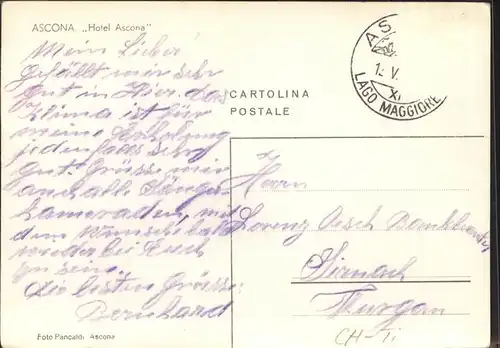 ASCONA „Hotel Ascona"
Mein Lieber
Gefällt mir sehr
gut in Hier. das
Klima ist für
meine Erholung
jedenfalls sehr
gut. Grüsse mir
auch alle Sänges-
kameraden, mit
dem Wunsche bald
wieder bei Euch
zu sein.
die besten Grüsse
Bernhard
Foto Pancaldi Ascona
CARTOLINA
POSTALE
AS
1. V.
XI
LAGO MAGGIORE
Herrn
Lorenz Oesch
Sirnach
Thurgau
CH-Ti